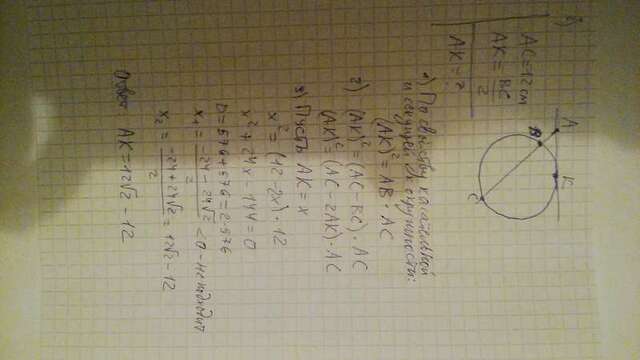 б)
AC = 12 см
AK = BC/2
AK = ?
A
B
K
C
1) По свойству касательной
и секущей к окружности:
(AK)² = AB · AC
2) (AK)² = (AC - BC) · AC
(AK)² = (AC - 2AK) · AC
3) Пусть AK = x
x² = (12 - 2x) · 12
x² + 24x - 144 = 0
D = 576 + 576 = 2·576
x₁ = (-24 - 24√2)/2 < 0 - не подходит
x₂ = (-24 + 24√2)/2 = 12√2 - 12
Ответ: AK = 12√2 - 12